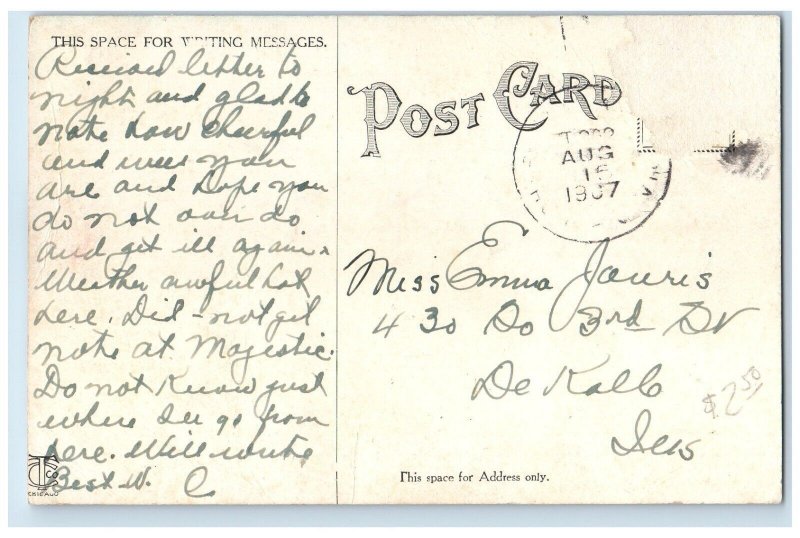 THIS SPACE FOR WRITING MESSAGES.
Received letter to
night and glad to
note how cheerful
and well you
are and hope you
do not over do
and get ill again.
Weather awful hot
here. Did not get
note at Majestic.
Do not know just
where I'll go from
here. Will write
Best W. C
CHICAGO
POST CARD
AUG
15
1907
Miss Emma
430 So 3rd St
De Kalb
Ills
$2.50
This space for Address only.